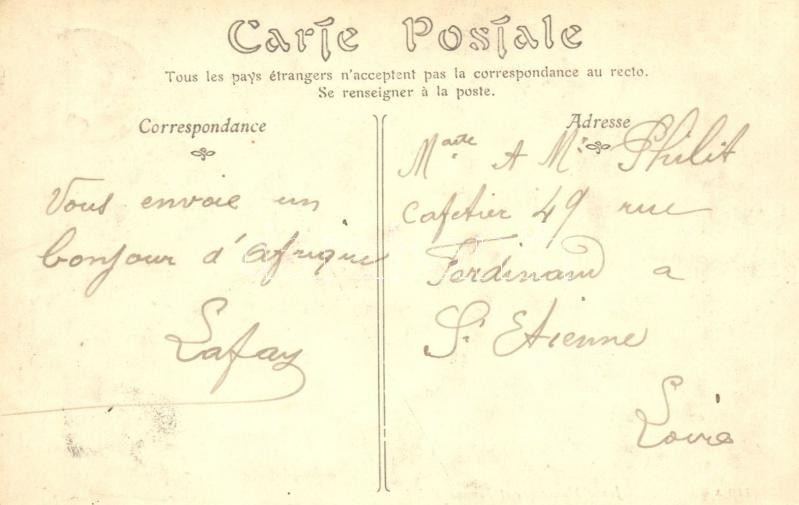 Carte Postale
Tous les pays étrangers n'acceptent pas la correspondance au recto.
Se renseigner à la poste.
Correspondance
Vous envoie un
bonjour d'afrique
Lafay
Adresse
A Mr Philit
cafetier 49 rue
Ferdinand a
St Etienne
Loire